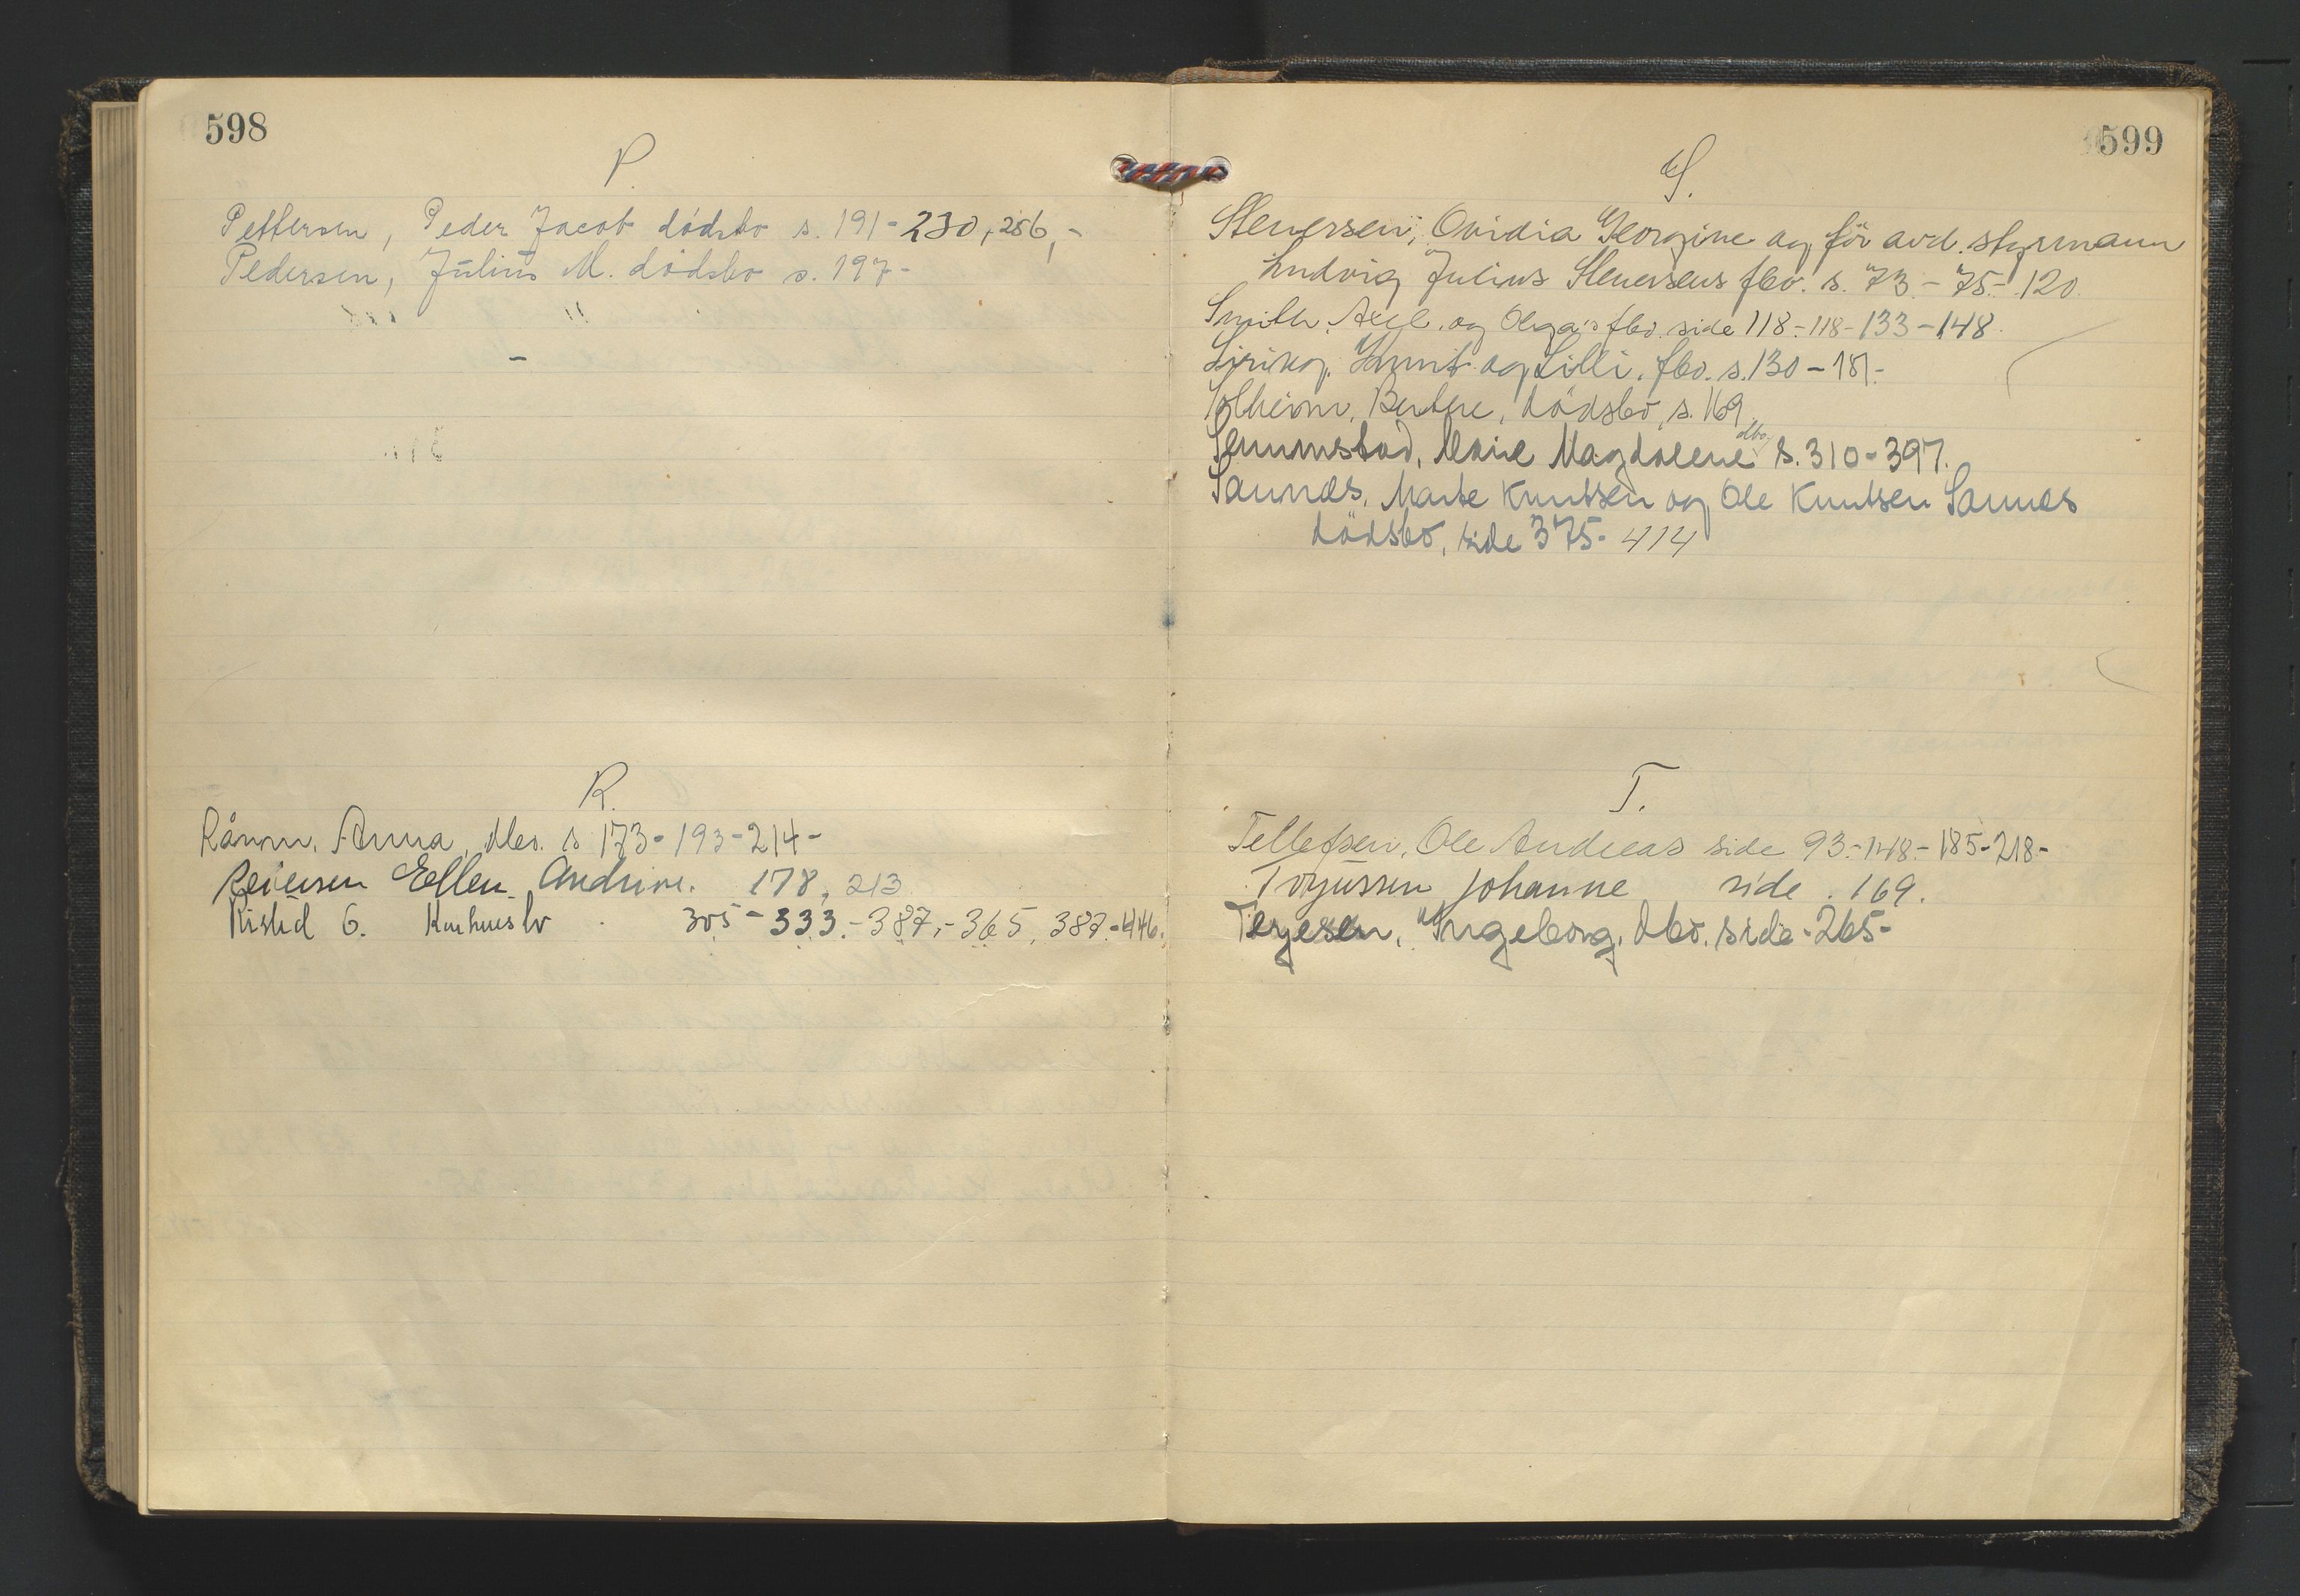 598
P.
Pettersen, Peder Jacob dödsbo s. 191-230,-256,-
Pedersen, Julius M. dödsbo s. 197-
R.
Råmm, Anna, dbo. s 173-193-214-
Reiersen Ellen Andrine. 178, 213
Ristid G. Konkursbo 305-333.-387,-365, 387.-446.
599
S.
Stenersen, Ovidia Georgine og för avd. styrmann
Ludvig Julius Stenersens fbo. s. 73.-75-120.
Smith, Axel. og Olga's fbo. side 118-118-133-148.
Knut og Lilli. fbo. s. 130-181-
Solheim, Berthe, dödsbo, s. 169
Magdalene dbo s. 310-397.
Saunæs, Marte Knutsen og Ole Knutsen Saunæs
dödsbo, side 375-414
T.
Tellefsen, Ole Andreas side 93-148-185-218-
Torjussen Johanne side 169.
Terjesen, Ingeborg, dbo. side-265-